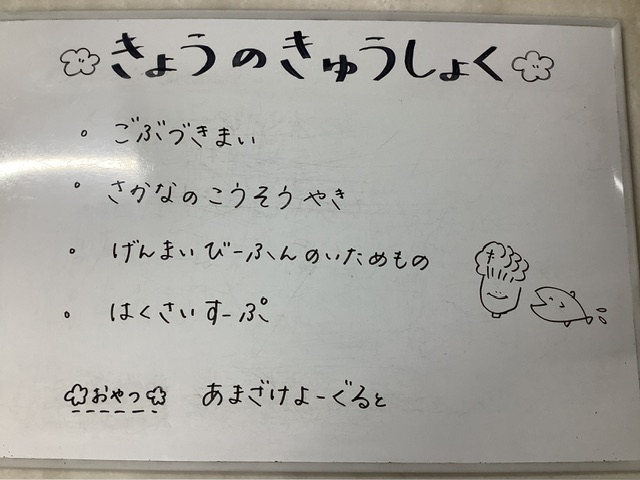 きょうのきゅうしょく
・ごぶづきまい
・さかなのこうそうやき
・げんまいびーふんのいためもの
・はくさいすーぷ
おやつ あまざけよーぐると